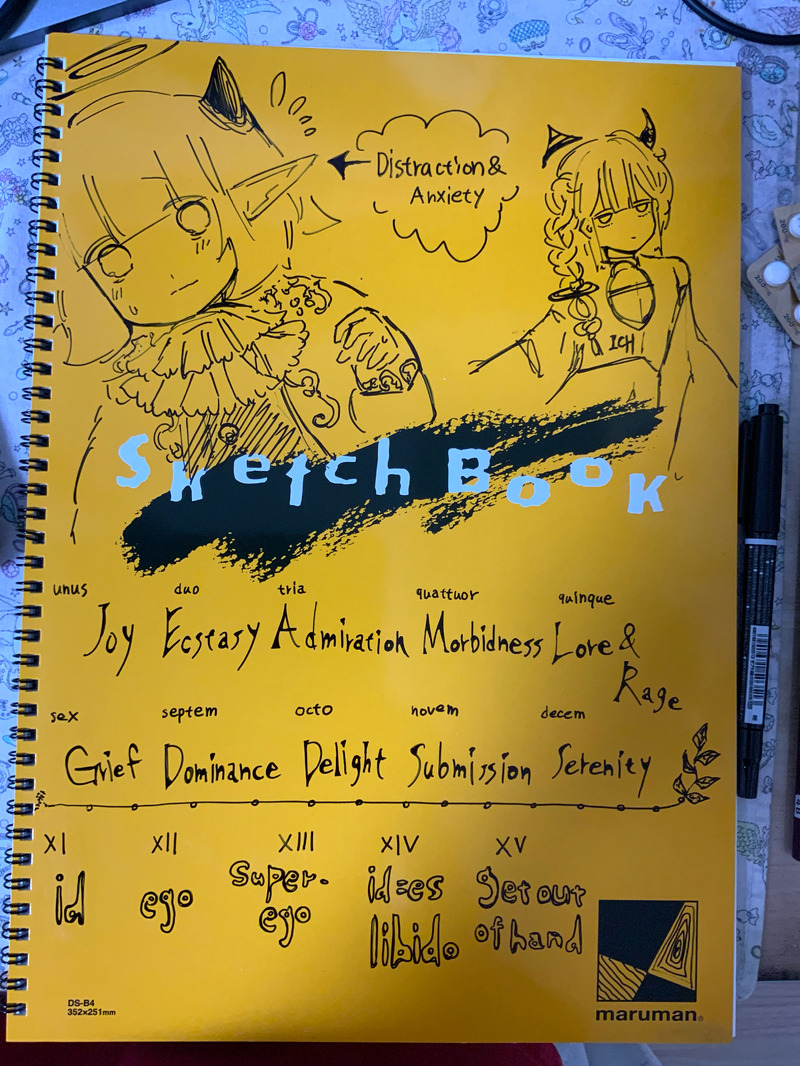 Distraction&
Anxiety
ICH
Sketch Book
unus duo tria quattuor quinque
Joy Ecstasy Admiration Morbidness Love &
Rage
sex septem octo novem decem
Grief Dominance Delight Submission Serenity
XI XII XIII XIV XV
id ego Super-ego id=es libido get out of hand
DS-B4
352×251mm
maruman®